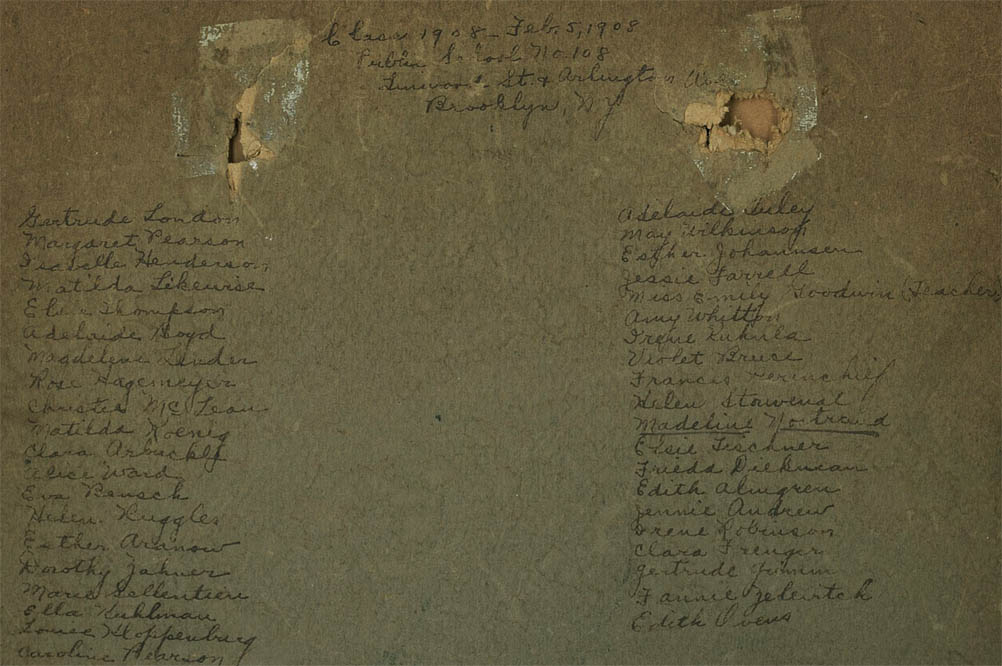 Class 1908 - Feb. 5, 1908
Public School No. 108
Linwood St. & Arlington Ave
Brooklyn, NY
Gertrude London
Margaret Pearson
Isabelle Henderson
Matilda Likewise
Thompson
Adelaide Boyd
Magdelene
Rose Hagemeyer
Christie McLean
Matilda Koenig
Clara Arbuckle
Alice Ward
Eva Rensch
Helen Ruggles
Esther Aranow
Dorothy Zahner
Marie Sellentien
Ella Kuhlman
Louise Hoppenburg
Caroline Pearson
Adelaide
May Wilkinson
Esther Johannsen
Jessie Farrell
Miss Emily Goodwin (Teacher)
Amy Whitton
Irene Kukula
Violet Bruce
Francis
Helen
Madeline Nostrand
Elsie Tischner
Frieda Diekman
Edith Almgren
Jennie Andrew
Irene Robinson
Clara Frenger
Gertrude
Fannie Zeleitch
Edith Ovens